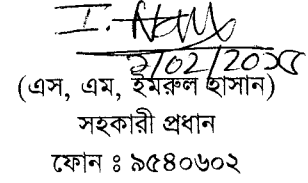 ২/02/20১৫
(এস, এম, ইমরুল হাসান)
সহকারী প্রধান
ফোন ঃ ৯৫৪০৬০২